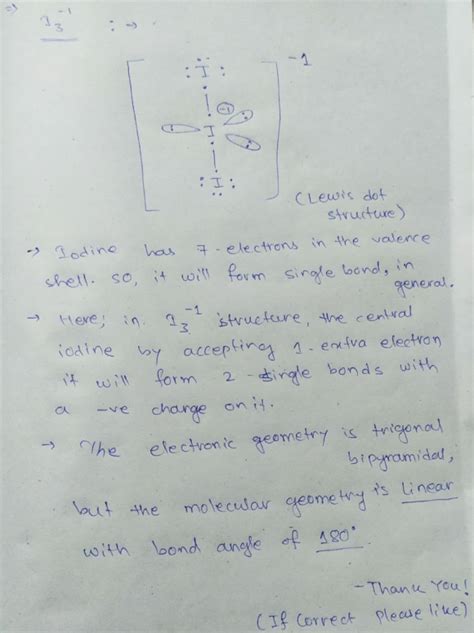 ⇒ I₃⁻¹ : →
-1
: I :
(-1)
I
: I :
(Lewis dot
structure)
→ Iodine has 7-electrons in the valence
shell. so, it will form single bond, in
general.
→ Here; in I₃⁻¹ structure, the central
iodine by accepting 1-extra electron
it will form 2-single bonds with
a -ve charge on it.
→ The electronic geometry is trigonal
bipyramidal,
but the molecular geometry is linear
with bond angle of 180°
- Thank You!
(If correct please like)